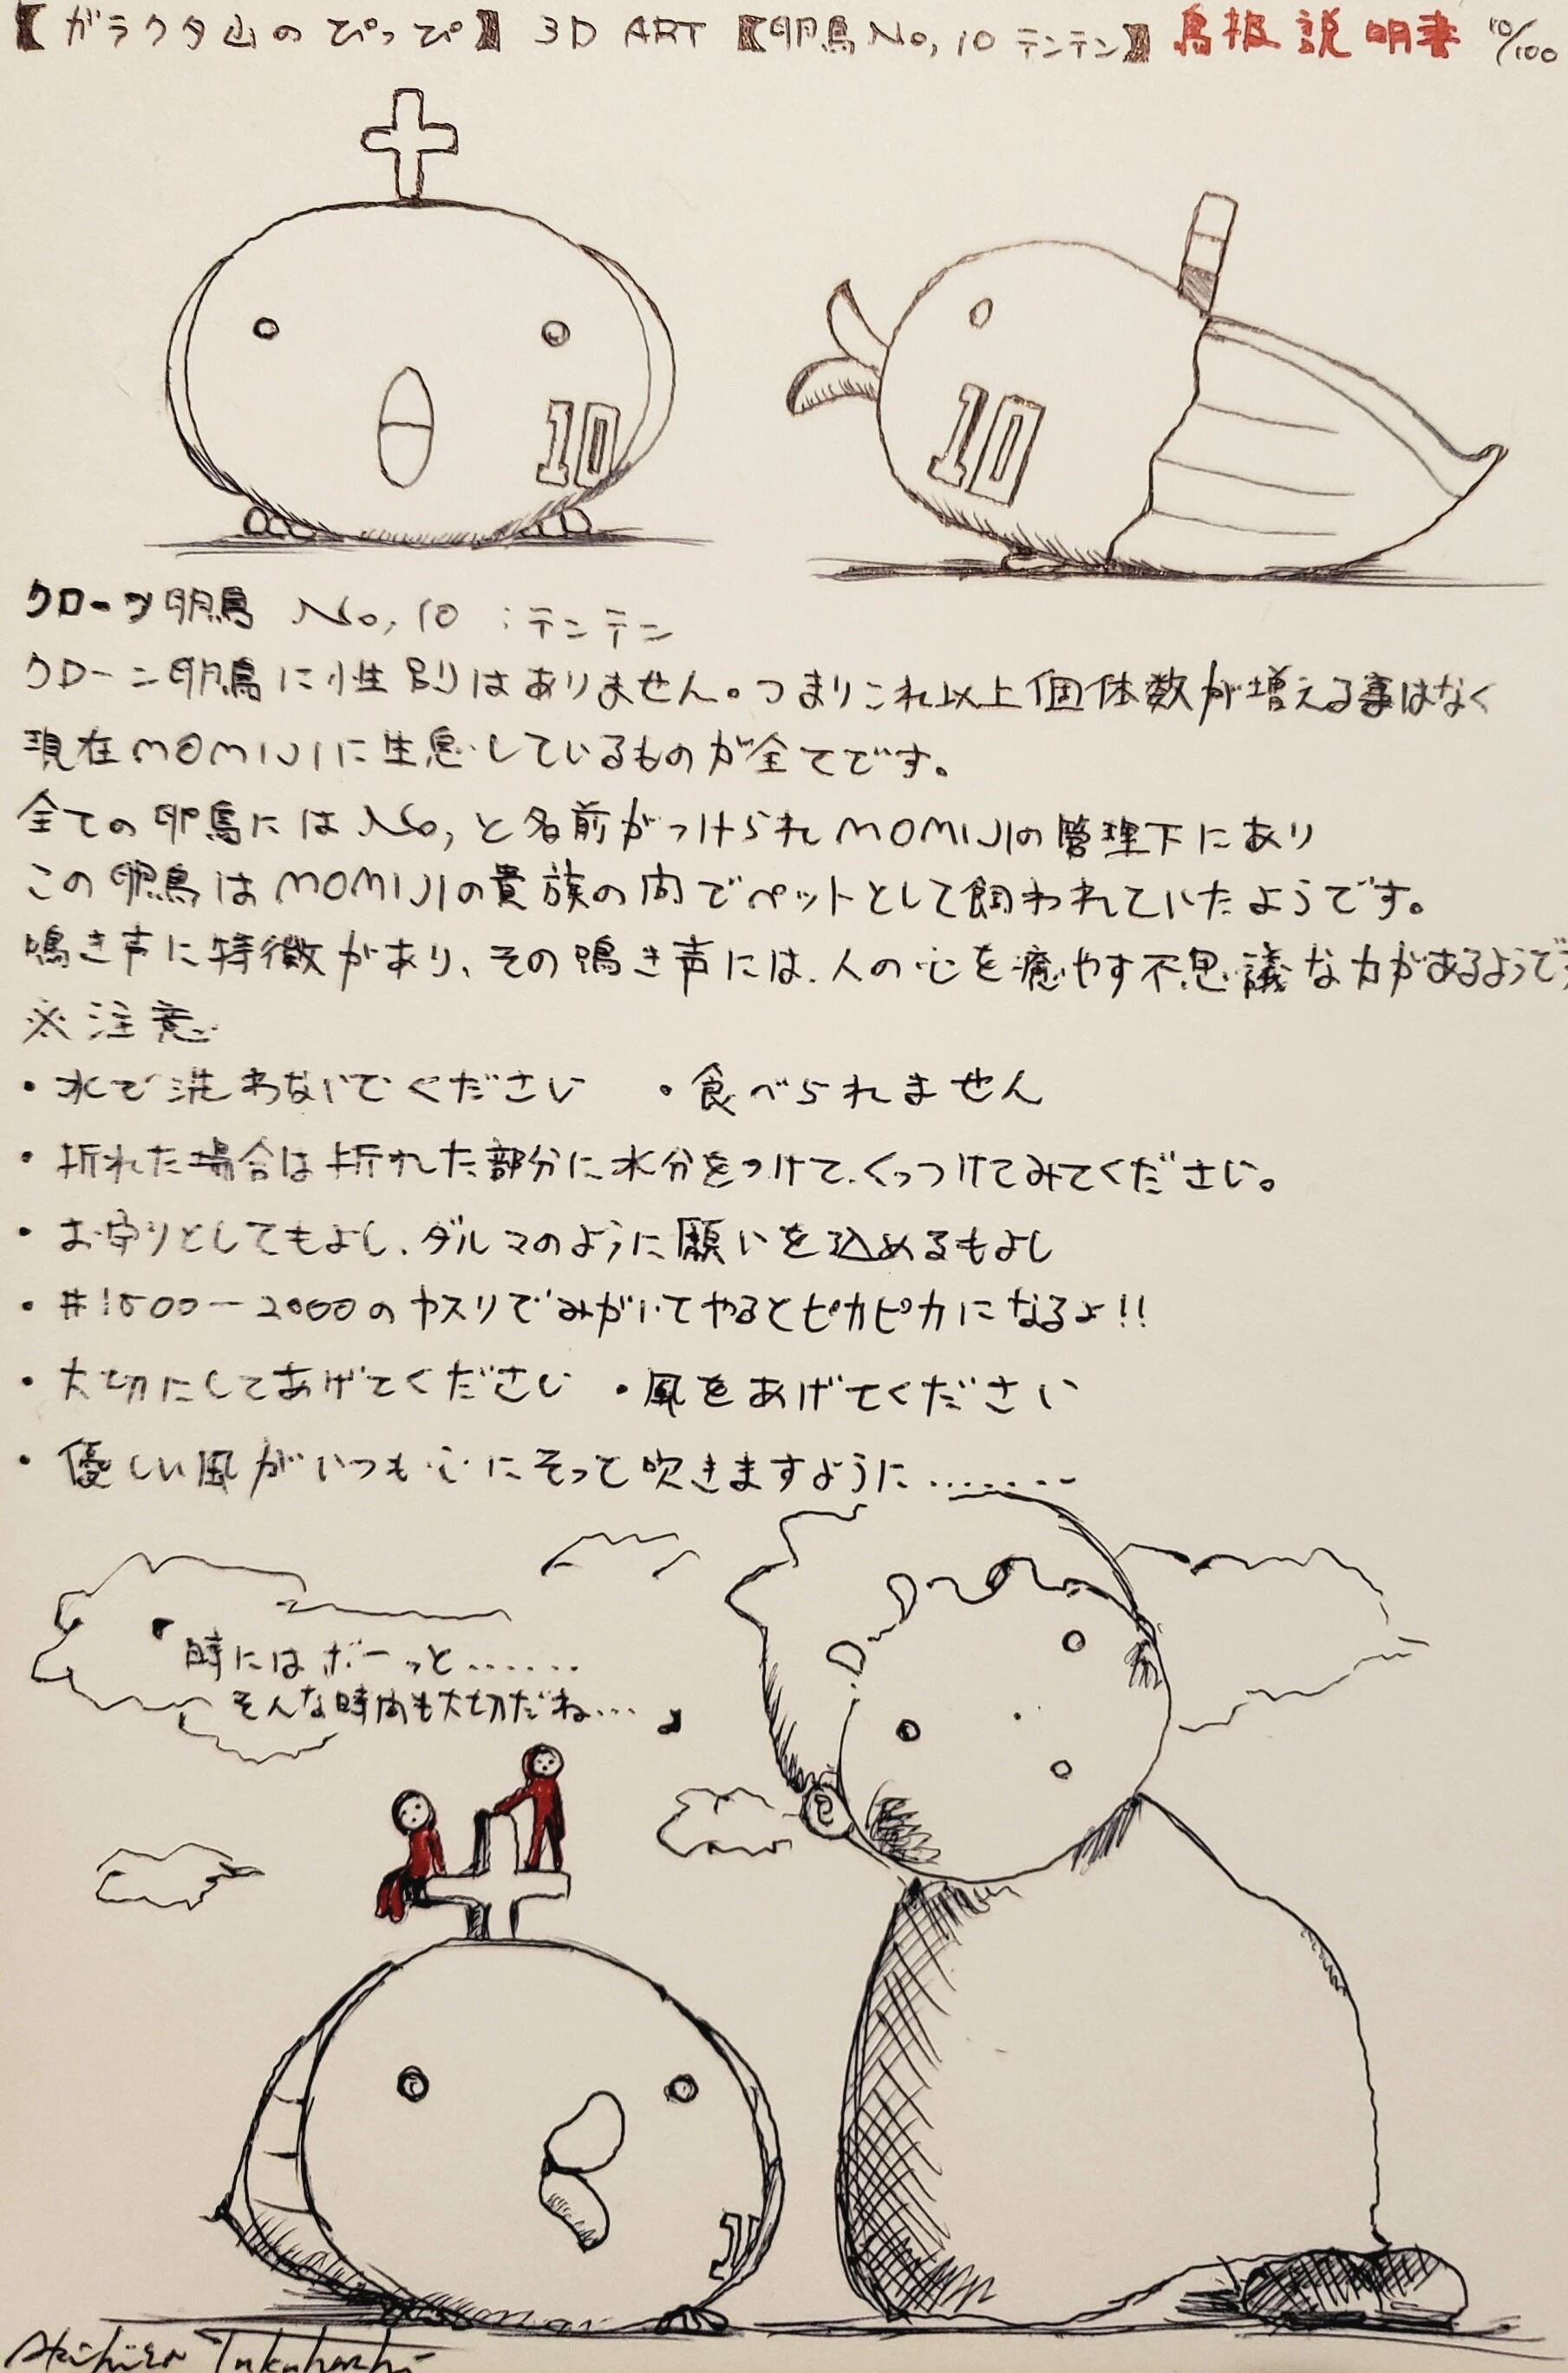 【ガラクタ山のぴっぴ】 3D ART 【卵鳥No,10 テンテン】 鳥扱説明書 10/100
10
10
クローン卵鳥 No,10 :テンテン
クローン卵鳥に性別はありません。つまりこれ以上個体数が増える事はなく
現在MOMIJIに生息しているものが全てです。
全ての卵鳥にはNo,と名前がつけられMOMIJIの管理下にあり
この卵鳥はMOMIJIの貴族の間でペットとして飼われていたようです。
鳴き声に特徴があり、その鳴き声には、人の心を癒やす不思議な力があるようです
※注意
・水で洗わないでください ・食べられません
・折れた場合は折れた部分に水分をつけて、くっつけてみてください。
・お守りとしてもよし、ダルマのように願いを込めるもよし
・#1500ー2000のヤスリでみがいてやるとピカピカになるよ!!
・大切にしてあげてください ・風をあげてください
・優しい風がいつも心にそっと吹きますように.......
「時にはボーっと......
そんな時間も大切だね...」
Akihiro Takahashi